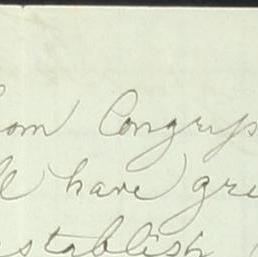 om Congress
ll have gre
establish